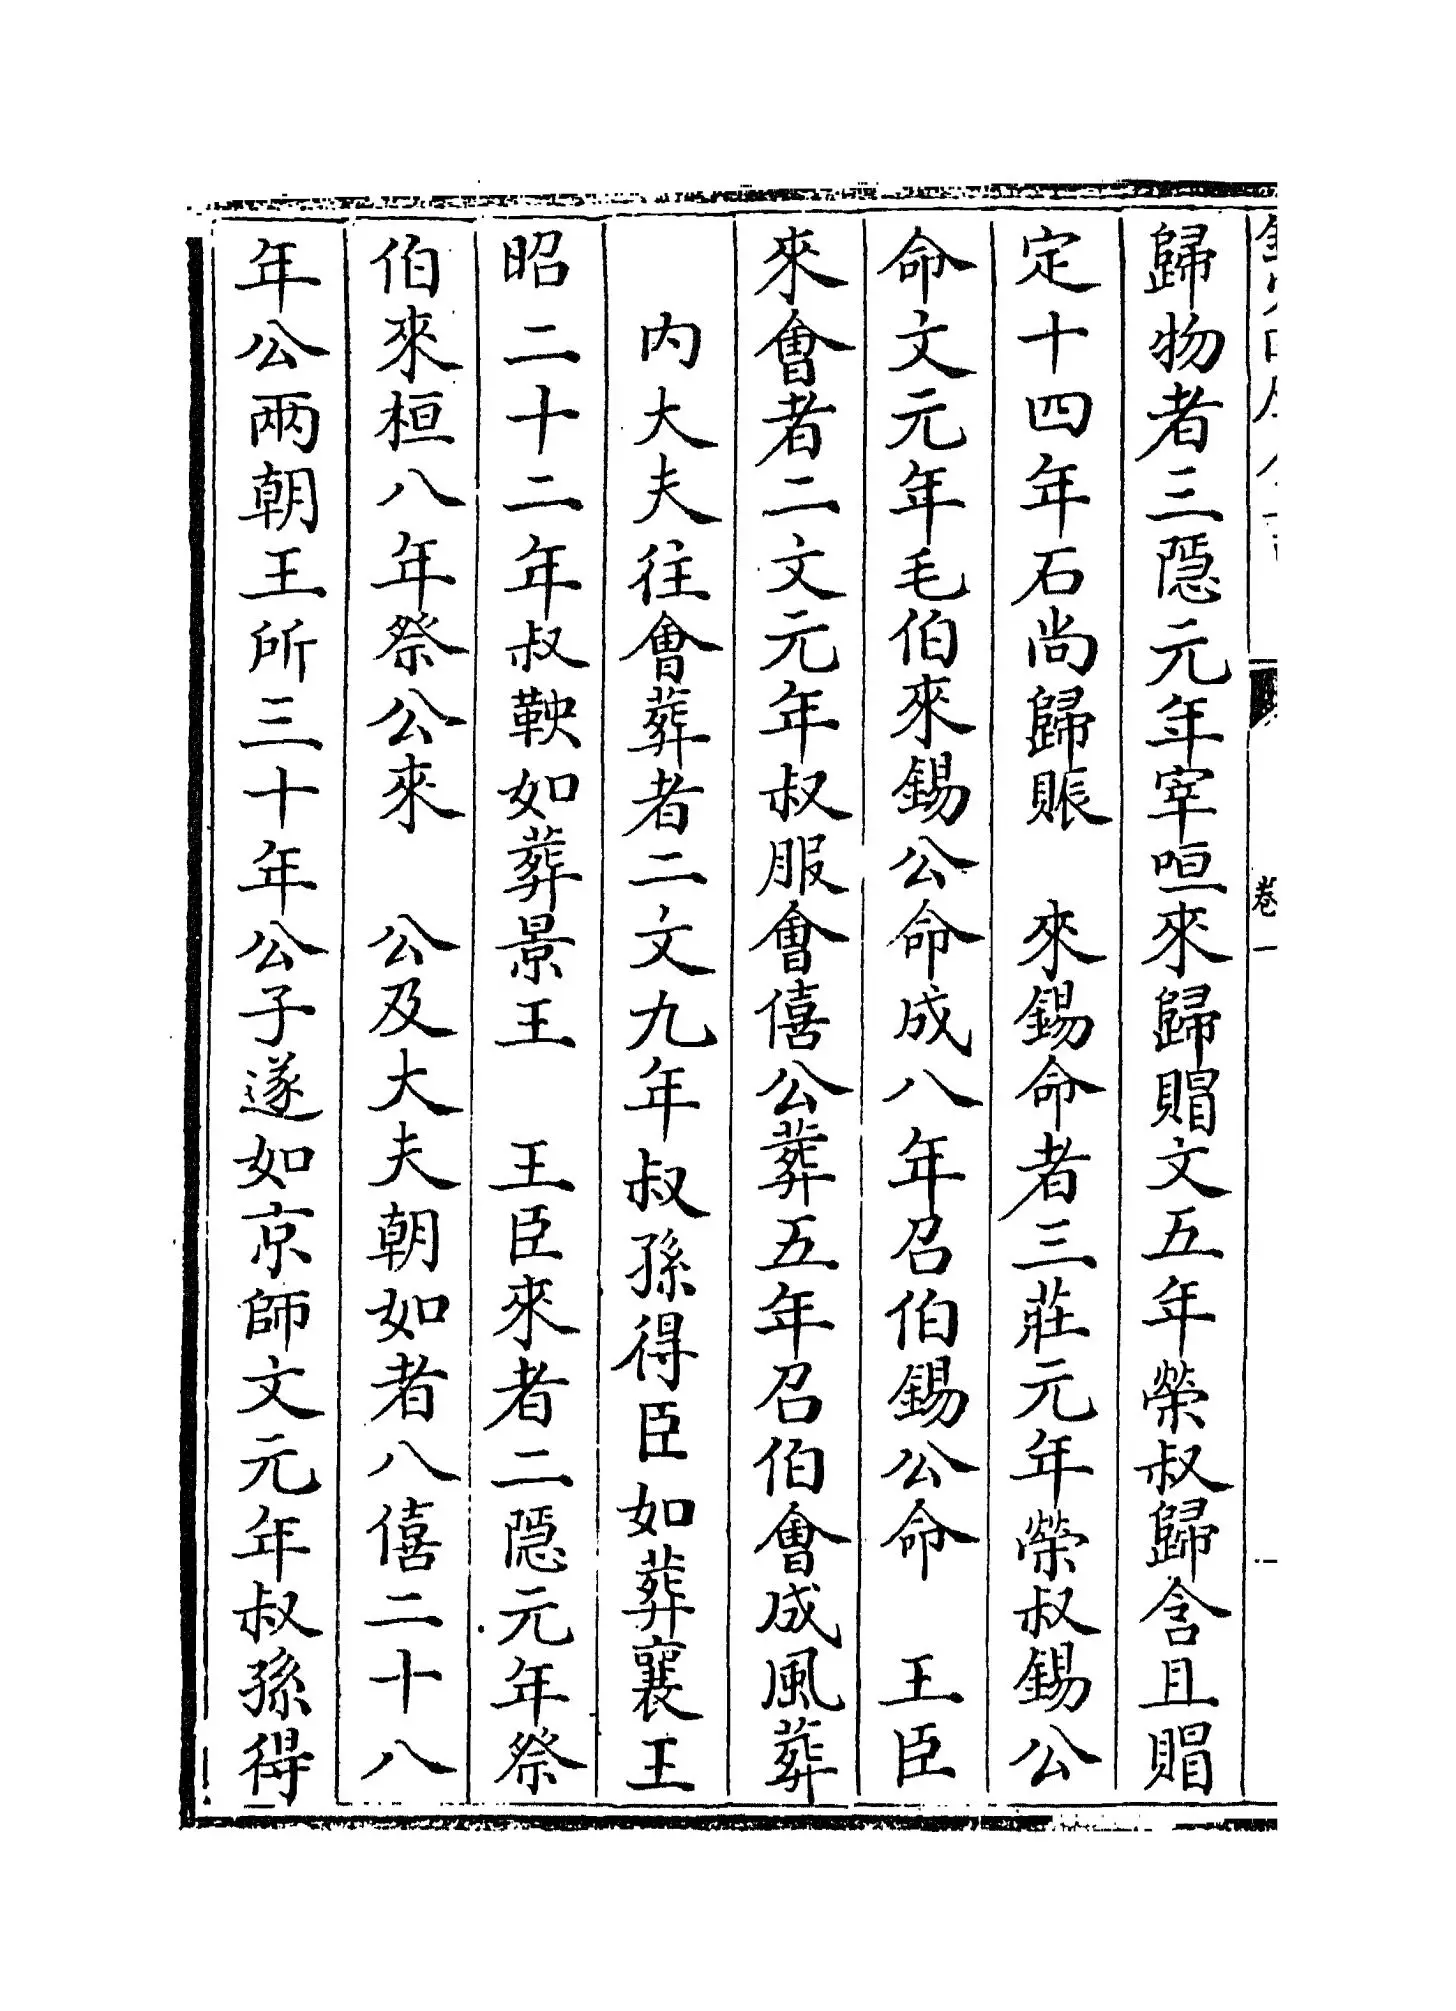 歸物者三隱元年宰咺來歸賵文五年榮叔歸含且賵
定十四年石尚歸脤　來錫命者三莊元年榮叔錫公
命文元年毛伯來錫公命成八年召伯錫公命　王臣
來會者二文元年叔服會僖公葬五年召伯會成風葬
　内大夫往會葬者二文九年叔孫得臣如葬襄王
昭二十二年叔鞅如葬景王　王臣來者二隱元年祭
伯來桓八年祭公來　公及大夫朝如者八僖二十八
年公兩朝王所三十年公子遂如京師文元年叔孫得
卷一